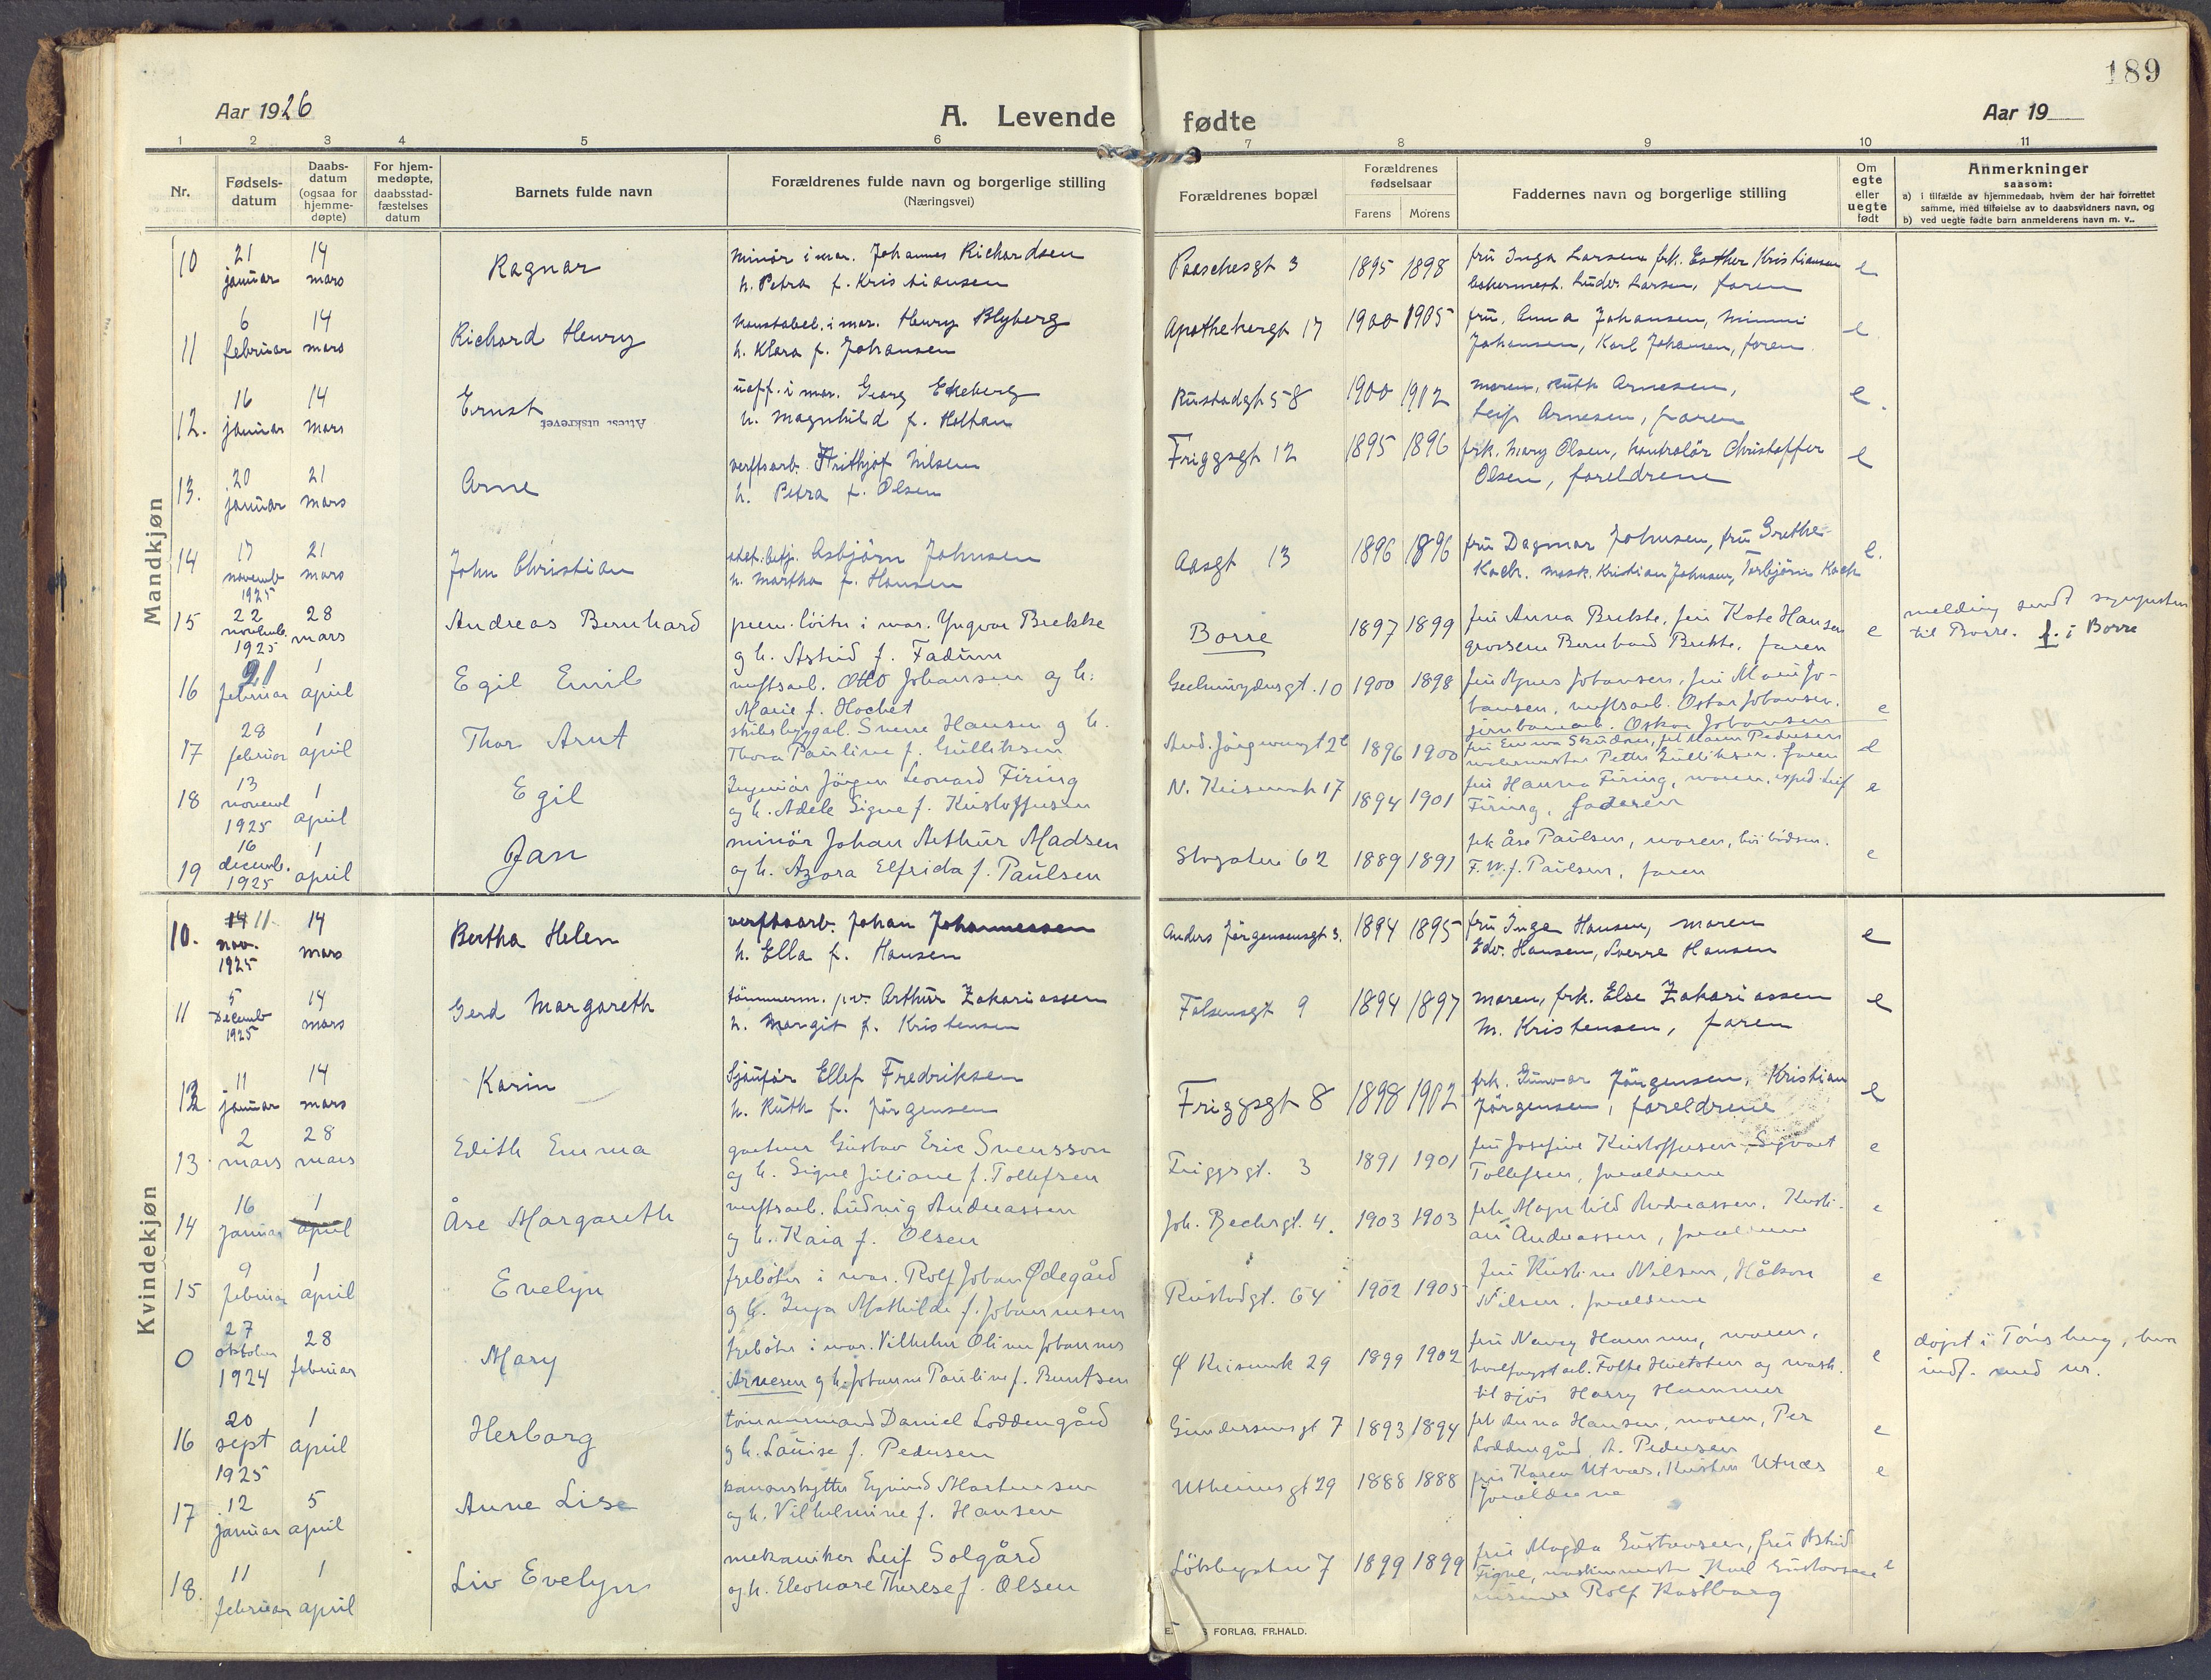 189
Aar 1926
A. Levende fødte
Aar 19
1 2 3 4 5 6 7 8 9 10 11
Nr.
Fødsels-
datum
Daabs-
datum
(ogsaa for
hjemme-
døpte)
For hjem-
medøpte,
daabsstad-
fæstelses
datum
Barnets fulde navn
Forældrenes fulde navn og borgerlige stilling
(Næringsvei)
Forældrenes bopæl
Forældrenes
fødselsaar
Farens Morens
Faddernes navn og borgerlige stilling
Om
egte
eller
uegte
født
Anmerkninger
saasom:
a) i tilfælde av hjemmedaab, hvem der har forrettet
samme, med tilføielse av to daabsvidners navn, og
b) ved uegte fødte barn anmelderens navn m. v..
Mandkjøn
10 21 januar 14 mars Ragnar
minör i mar. Johannes Richardsen
h. Petra f. Kristiansen
Paaschesgt 3 1895 1898
fru Inga Larsen frk. Esther Kristiansen
bakermest. Luder Larsen, faren
e
11 6 februar 14 mars Richard Henry
konstabel. i mar. Henry Blyberg
h. Klara f. Johansen
Apothekergt 17 1900 1905
fru. Anna Johansen, Mimmi
Johansen, Karl Johansen, faren.
e
12. 16 januar 14 mars Ernst
Attest utskrevet
uoff. i mar. Georg Ekeberg
h. Magnhild f. Holtan
Rustadgt 58 1900 1902
moren, Ruth Arnesen,
Leif Arnesen, faren
e.
13. 20 januar 21 mars Arne
verftsarb. Frithjof Nilsen
h. Petra f. Olsen
Friggsgt 12 1895 1896
frk. Mary Olsen, kontrolör Christoffer
Olsen, foreldrene
e
14 17 novemb 1925 21 mars John Christian
Asbjørn Johnsen
h. Martha f. Hansen
Aasgt 13 1896 1896
fru Dagmar Johnsen, fru Grethe
Koch. mask. Kristian Johnsen, Torbjörn Koch
e.
15 22 novemb. 1925 28 mars Andreas Bernhard
prem. löitn i mar. Yngvar Brekke
og h. Astrid f. Fadum
Borre 1897 1899
fru Anna Brekke, fru Kate Hansen
grosserer Bernhard Brekke, faren
e
melding sendt sogneprsten
til Borre. f. i Borre
16 21 februar 1 april Egil Emil
verftsarb. Otto Johansen og h.
Marie f. Hochet
10 1900 1898
fru Agnes Johansen, fru Marie Jo-
hansen, verftsarb. Oskar Johansen,
jernbanearb. Oskar Johansen
e
17 28 februar 1 april Thor Arnt
skibsbyggarb. Sverre Hansen og h.
Thora Pauline f. Gulliksen
And. Jörgensensgt 2b 1896 1900
fru Emma frk Marie Pedersen
Petter Gulliksen. faren
e
18 13 novemb 1925 1 april Egil
Ingeniör Jörgen Leonard Firing
og h. Adele Signe f. Kristoffersen
N. Keisemark 17 1894 1901
fru Hanna Firing, moren, exped. Leif
Firing, faderen
e
19 16 decemb. 1925 1 april Jan
minör Johan Arthur Madsen
og h. Azora Elfrida f. Paulsen
Storgaten 62 1889 1891
frk Åse Paulsen, moren,
F. W. f. Paulsen, faren
e
Kvindekjøn
10. 14 11 nov. 1925 14 mars Bertha Helen
verftsarb. Johan Johannessen
h. Ella f. Hansen
Anders Jörgensensgt 3. 1894 1895
fru Inga Hansen, moren
Edv. Hansen, Sverre Hansen
e
11 5 Decemb 1925 14 mars Gerd Margareth
tömmerm. Arthur Zakariassen
h. Margit f. Kristensen
Falsensgt 9 1894 1897
moren, frk. Else Zakariassen
M. Kristensen, faren
e
12 11 januar 14 mars Karin
Sjauför Ellef Fredriksen
h. Ruth f. Jörgensen
Friggsgt 8 1898 1902
frk. Gunvor Jörgensen, Kristian
Jörgensen, foreldrene
e
13 2 mars 28 mars Edith Emma
gartner Gustav Eric Svensson
og h. Signe Juliane f. Tollefsen
Friggsgt. 3 1891 1901
fru Josefine Kristoffersen, Sigvart
Tollefsen, foreldrene
e
14 16 januar 1 april Åse Margareth
verftsarb. Ludvig Andreassen
og h. Kaia f. Olsen
Joh. Bechsgt. 4. 1903 1903
frk. Magnhild Andreassen. Kristi-
an Andreassen, foreldrene
e
15 9 februar 1 april Evelyn
fyrböter i mar. Rolf Johan Ødegård
og h. Inga Mathilde f. Johannesen
Rustadgt. 64 1902 1905
fru Kristine Nilsen, Håkon
Nilsen, foreldrene
e
0 27 oktober 1924 28 februar Mary
fyrböter i mar. Vilhelm Oliver Johannes
Arnesen og h. Johanne Pauline f. Berntsen
Ø Keisemark 29 1899 1902
fru Nancy Hammer, moren,
Folke og mask.
til sjös Harry Hammer
e
döpt i Tönsberg, her
indf. med nr.
16 20 sept 1925 1 april Herborg
tömmermand Daniel Loddengård
og h. Louise f. Pedersen
Gundersensgt 7 1893 1894
frk Anna Hansen, moren, Per
Loddengård, A. Pedersen
e
17 12 januar 5 april Anne Lise
kanonskytter Eyvind Martinsen
og h. Vilhelmine f. Hansen
Utheimsgt 29 1888 1888
fru Karen Utnæs, Kristen Utnæs
foreldrene
e
18. 11 februar 1 april Liv Evelyn
mekaniker Leif Solgård
og h. Eleonore Therese f. Olsen
Löbbgaten 7 1899 1899
fru Magda Gustavsen, fru Astrid
Figue, maskinmester Karl Gustavsen
Rolf Kastborg
e
FORLAG, FR.HALD.